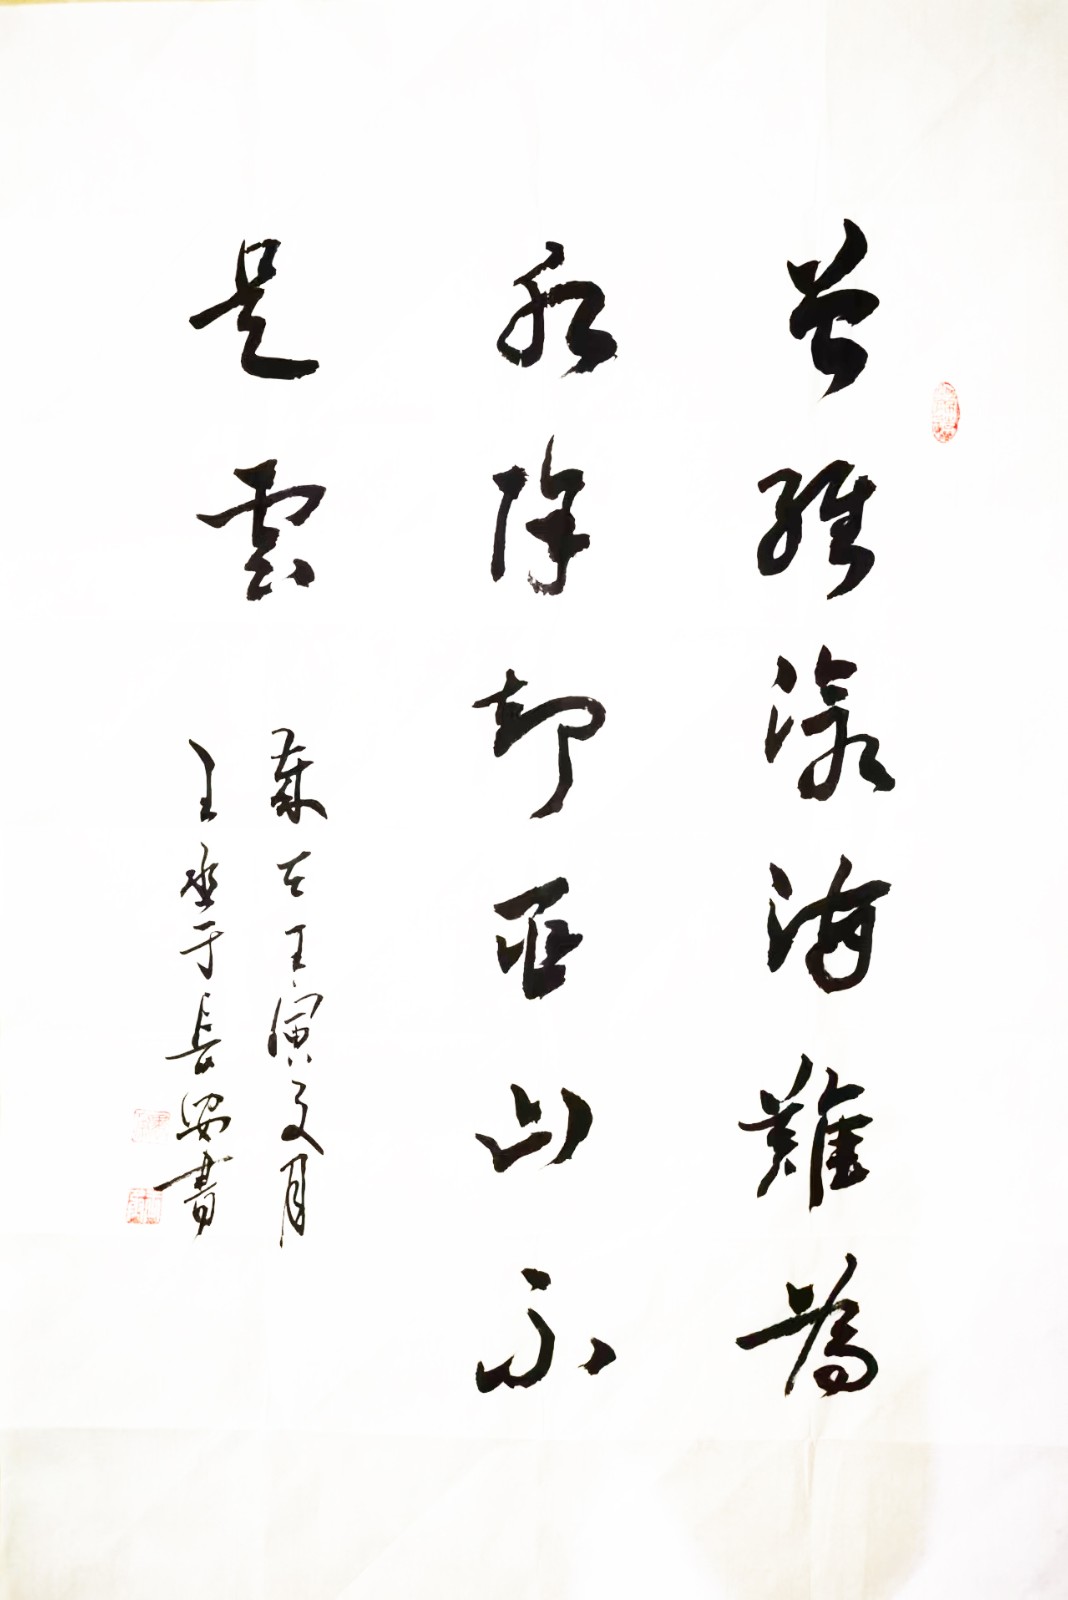 曾經滄海難為
水除却巫山不
是雲
歲在壬寅夏月
王丞于長安書